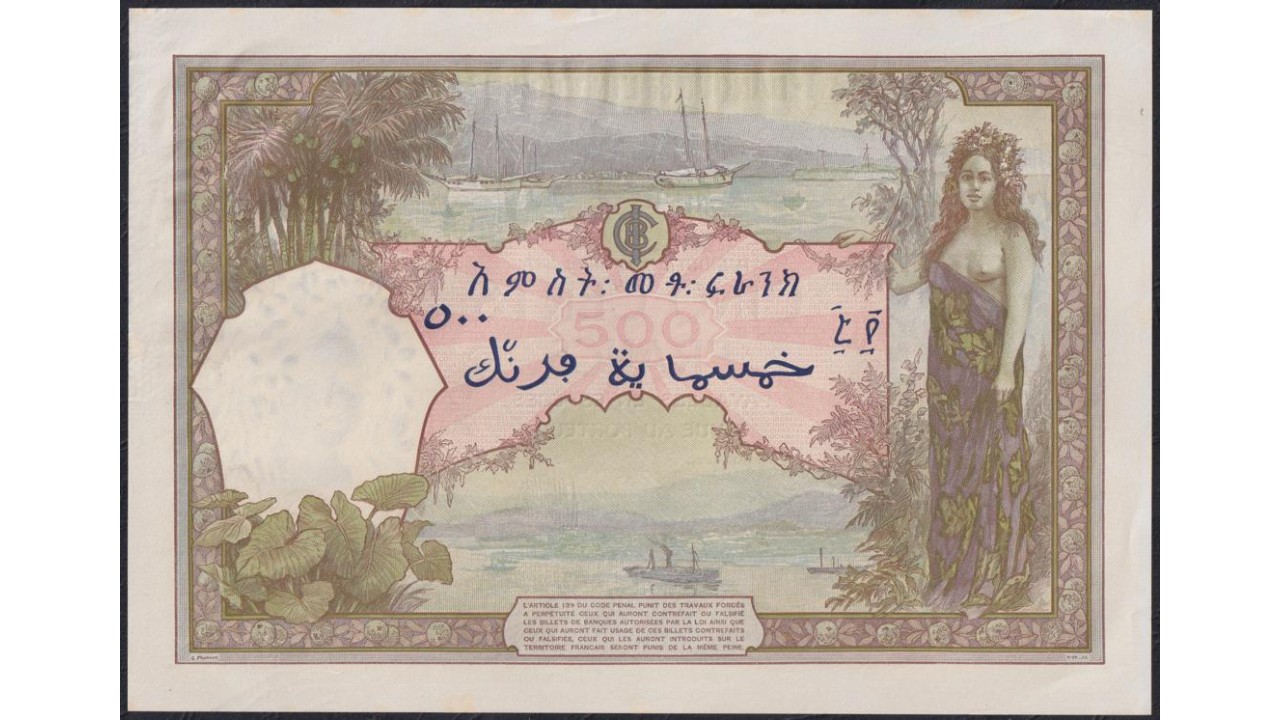 አምስት፡ መቶ፡ ፍራንክ
٥٠٠
500
፭፻
خمسماية فرنك
L'ARTICLE 139 DU CODE PENAL PUNIT DES TRAVAUX FORCÉS
A PERPÉTUITE CEUX QUI AURONT CONTREFAIT OU FALSIFIÉ
LES BILLETS DE BANQUES AUTORISÉES PAR LA LOI AINSI QUE
CEUX QUI AURONT FAIT USAGE DE CES BILLETS CONTREFAITS
OU FALSIFIES, CEUX QUI LES AURONT INTRODUITS SUR LE
TERRITOIRE FRANCAIS SERONT PUNIS DE LA MÊME PEINE.